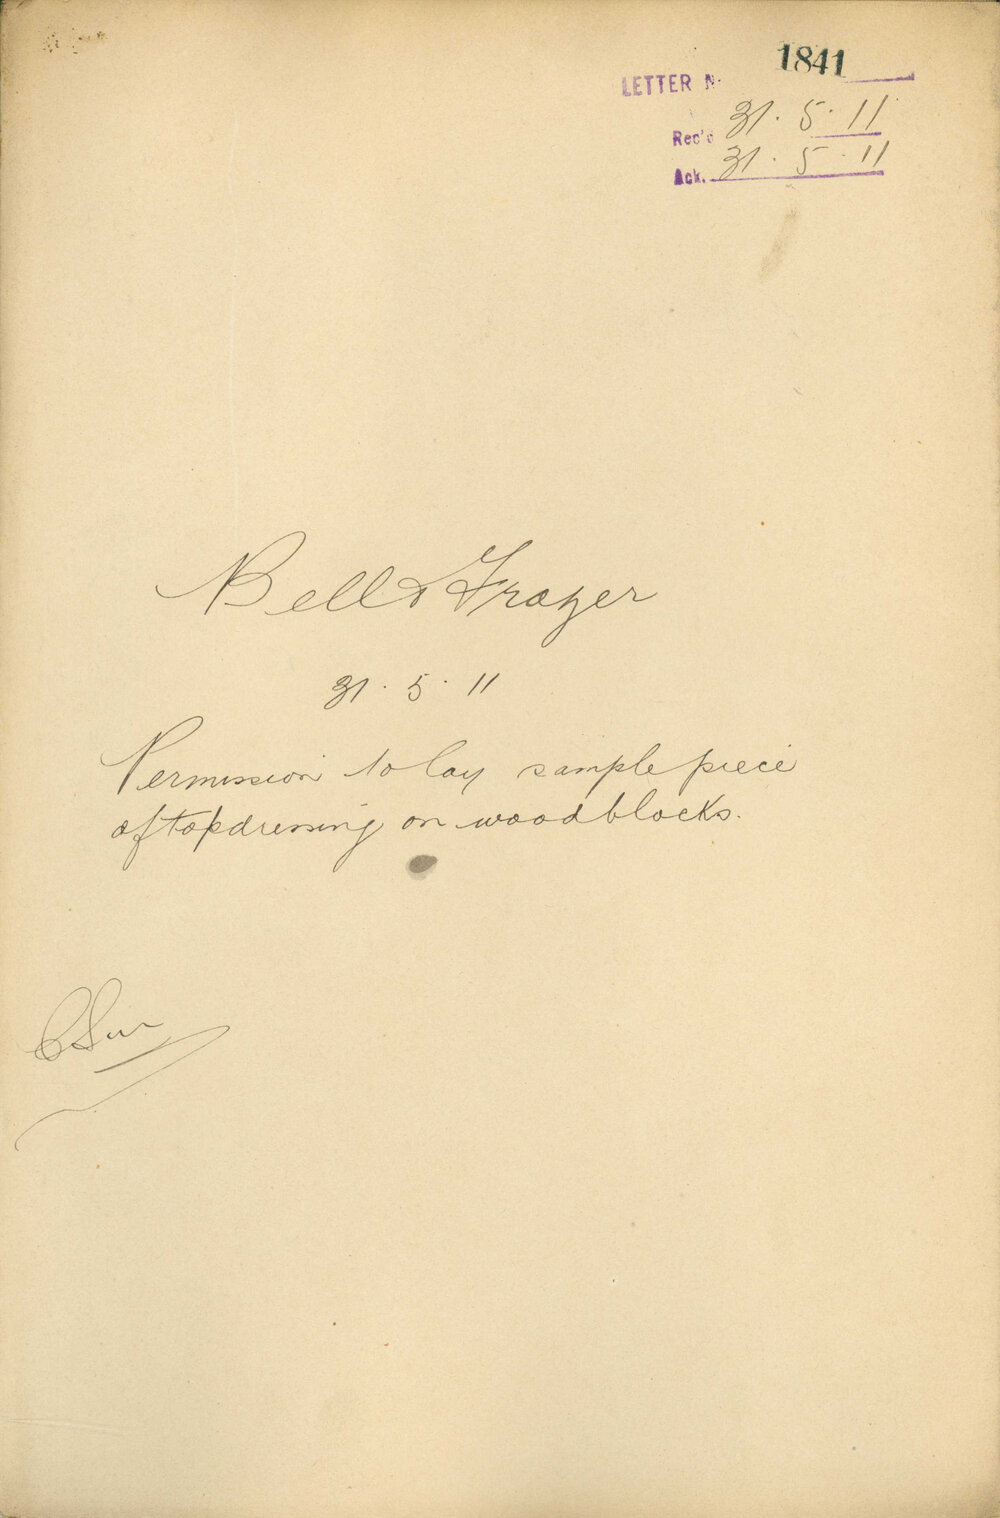 LETTER No. 1841
Rec'd 31.5.11
Ack. 31.5.11
Bell & Frazer
31.5.11
Permission to lay sample piece
of topdressing on woodblocks.